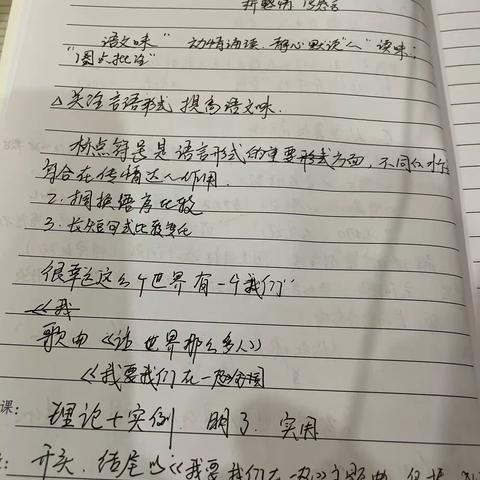 语文味" 动情诵读、静心默读"人" 读味;
"圈点批注"
△关注言语形式 提高语文味.
标点符号是语言形式的重要形式方面,不同标点
符合在传情达人作用.
2. 调换语序比较
3. 长短句式比较变化
很幸运这么个世界有一个我们"
《我
歌曲《让世界那么多人》
《我要我们在一起
课: 理论+实例. 明了. 实用
开头、结尾以《我要我们在一起》主题曲